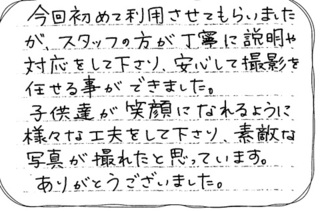 今回初めて利用させてもらいました
が、スタッフの方が丁寧に説明や
対応をして下さり、安心して撮影を
任せる事ができました。
子供達が笑顔になれるように
様々な工夫をして下さり、素敵な
写真が撮れたと思っています。
ありがとうございました。